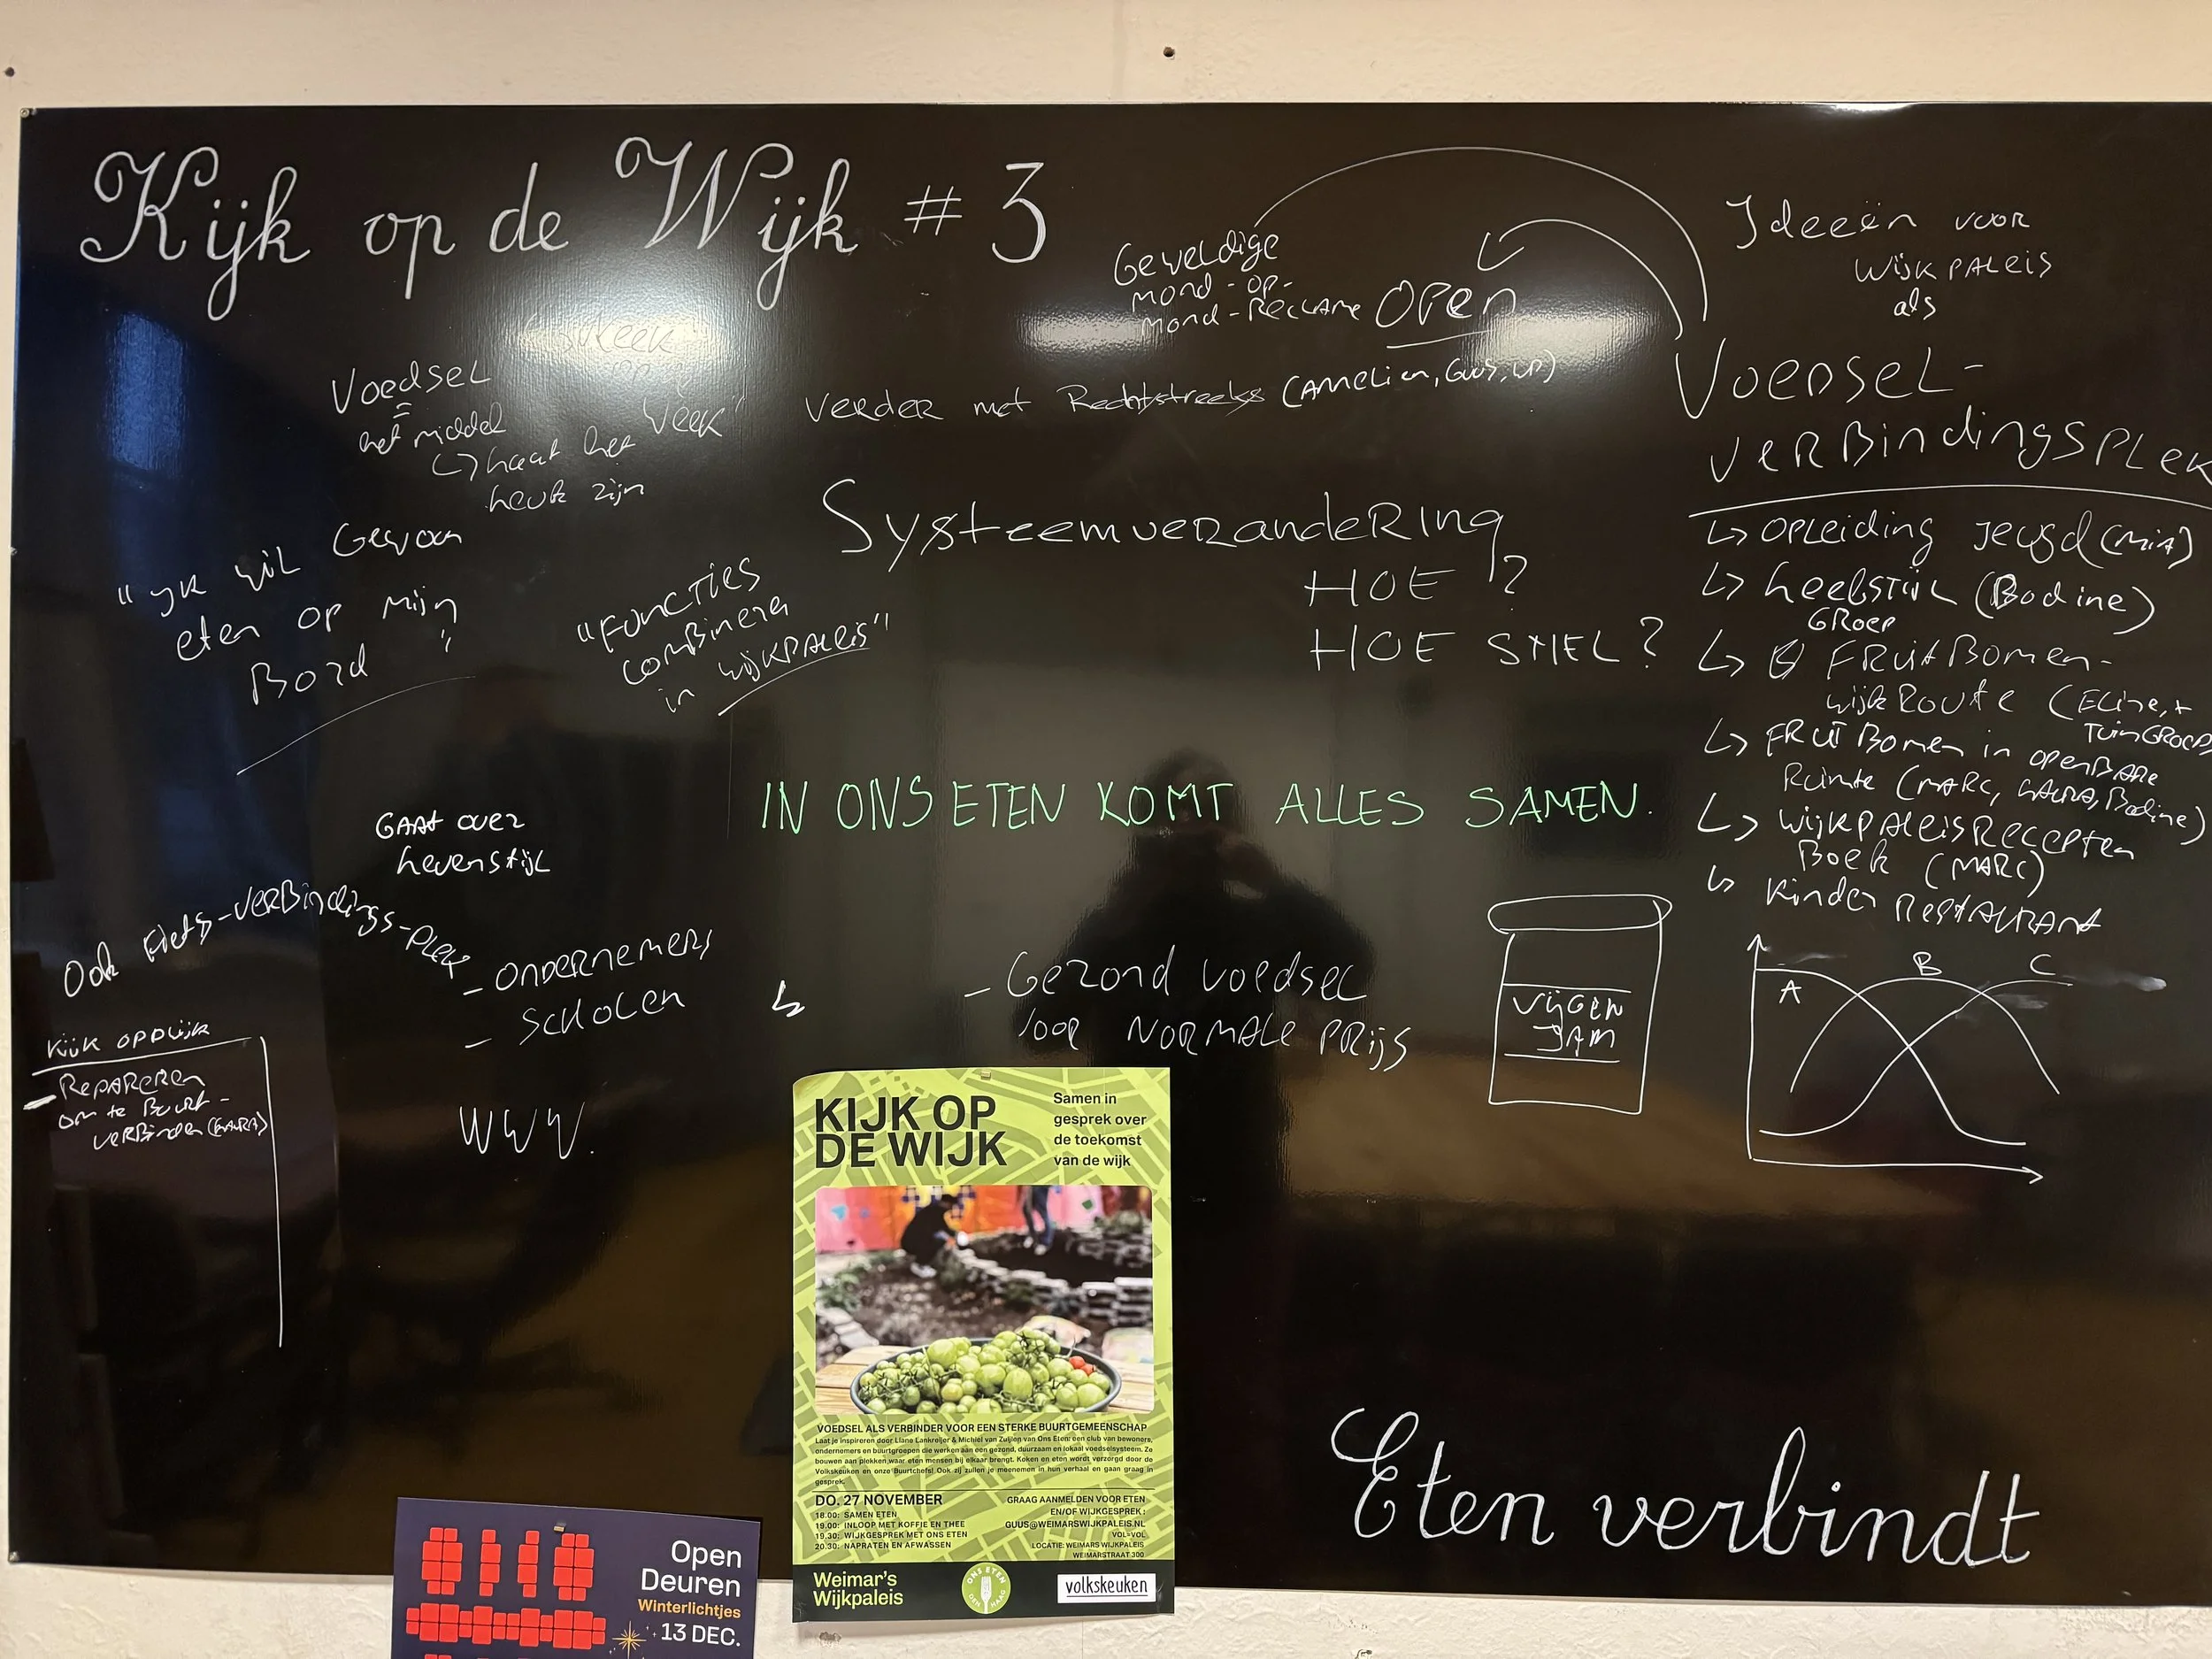 Kijk op de Wijk # 3
Geweldige
mond-op-
mond-Reclame
open
Ideeën voor
wijkpaleis
als
Voedsel-
verbindingsplek
↳ opleiding jeugd (Mia)
↳ leefstijl (Bodine)
GRoep
↳ FRuitBomen-
wijkRoute (Eline, +
TuinGRoep)
↳ FRuitBomen in openBaRe
Ruimte (MARC, LAURA, Bodine)
↳ wijkpaleisRecepten
Boek (MARC)
↳ kinder RestauRant
Voedsel
=
het middel
↳ laat het
leuk zijn
week"
Verder met Rechtstreeks (Amelien, Guus,
SysteemveRandeRing
HOE ?
HOE SNEL?
"ik wil Gewoon
eten op mijn
BoRd"
"Functies
combineren
in wijkpaleis"
IN ONS ETEN KOMT ALLES SAMEN.
GAAt over
levenstijl
Ook Fiets-verBindings-plek
- ondernemers
- scholen
↳
- Gezond voedsel
voor NORMALE PRijs
VijGEN
JAM
A
B
C
Kijk op Dijk
- RepaReRen
om te Buurt-
verBinden (LAURA)
WWW.
KIJK OP
DE WIJK
Samen in
gesprek over
de toekomst
van de wijk
VOEDSEL ALS VERBINDER VOOR EEN STERKE BUURTGEMEENSCHAP
Laat je inspireren door Liane Lankreijer & Michiel van Zuijlen van Ons Eten: een club van bewoners,
ondernemers en buurtgroepen die werken aan een gezond, duurzaam en lokaal voedselsysteem. Ze
bouwen aan plekken waar eten mensen bij elkaar brengt. Koken en eten wordt verzorgd door de
Volkskeuken en onze Buurtchefs! Ook zij zullen je meenemen in hun verhaal en gaan graag in
gesprek.
DO. 27 NOVEMBER
18.00: SAMEN ETEN
19.00: INLOOP MET KOFFIE EN THEE
19.30: WIJKGESPREK MET ONS ETEN
20.30: NAPRATEN EN AFWASSEN
GRAAG AANMELDEN VOOR ETEN
EN/OF WIJKGESPREK:
GUUS@WEIMARSWIJKPALEIS.NL
VOL=VOL
LOCATIE: WEIMARS WIJKPALEIS
WEIMARSTRAAT 300
Weimar's
Wijkpaleis
ONS ETEN
DEN HAAG
volkskeuken
Eten verbindt
Open
Deuren
Winterlichtjes
13 DEC.